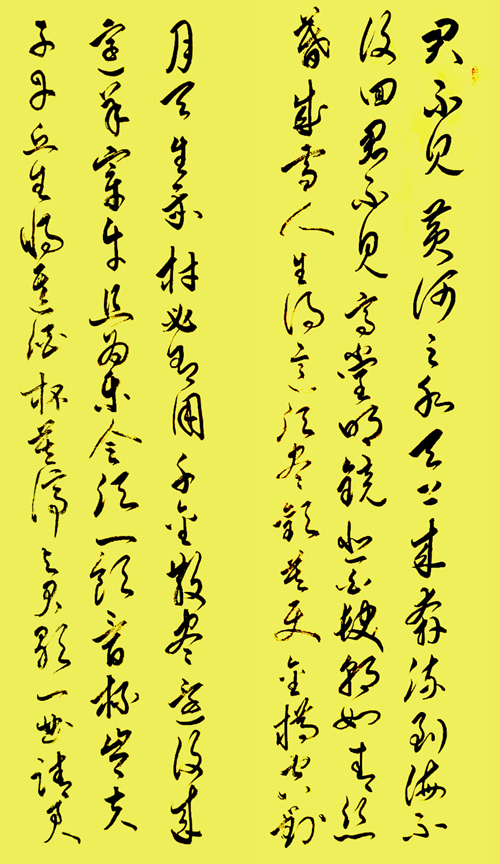 君不见黄河之水天上来奔流到海不
復回君不见高堂明镜悲白髮朝如青丝
暮成雪人生得意须尽歡莫使金樽空对
月天生我材必有用千金散尽还復来
烹羊宰牛且为乐会须一饮三百杯岑夫
子丹丘生将进酒杯莫停与君歌一曲请君